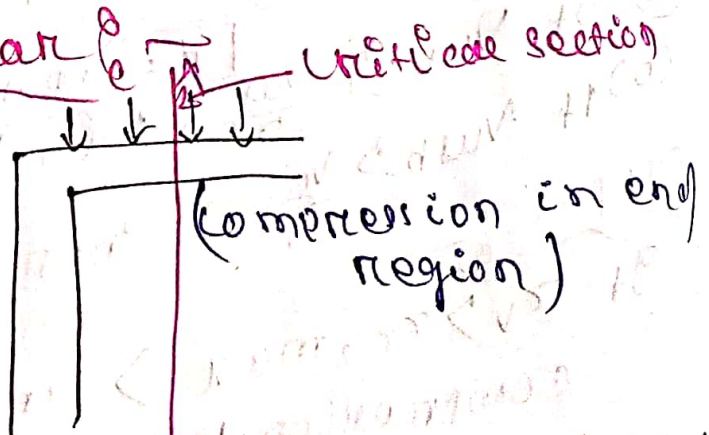 critical section
(compression in end
region)